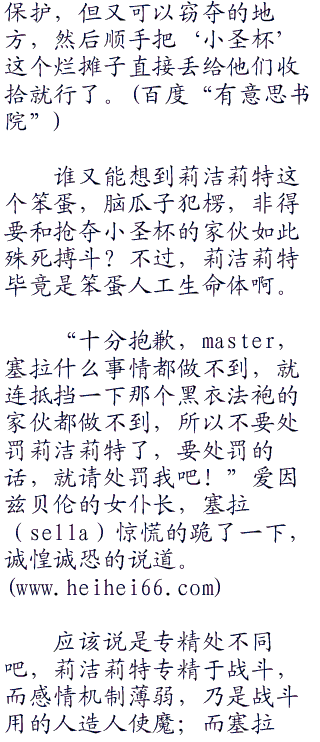 保护，但又可以窃夺的地
方，然后顺手把‘小圣杯’
这个烂摊子直接丢给他们收
拾就行了。(百度“有意思书
院”)
谁又能想到莉洁莉特这
个笨蛋，脑瓜子犯楞，非得
要和抢夺小圣杯的家伙如此
殊死搏斗？不过，莉洁莉特
毕竟是笨蛋人工生命体啊。
“十分抱歉，master，
塞拉什么事情都做不到，就
连抵挡一下那个黑衣法袍的
家伙都做不到，所以不要处
罚莉洁莉特了，要处罚的
话，就请处罚我吧！”爱因
兹贝伦的女仆长，塞拉
（sella）惊慌的跪了一下，
诚惶诚恐的说道。
(www.heihei66.com)
应该说是专精处不同
吧，莉洁莉特专精于战斗，
而感情机制薄弱，乃是战斗
用的人造人使魔；而塞拉